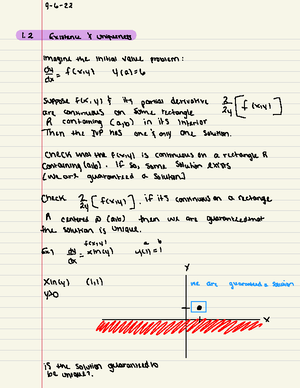 9-6-22
1.2 Existence & Uniqueness
Imagine the initial value problem:
dy/dx = f(x,y) y(a)=b
Suppose f(x,y) & its partial derivative ∂/∂y [f(x,y)]
are continuous on some rectangle
R containing (a,b) in its interior
Then the IVP has one & only one solution.
Check that the f(x,y) is continuous on a rectangle R
containing (a,b). If so, some solution exists
[we are guaranteed a solution]
Check ∂/∂y [f(x,y)]. if it's continuous on a rectangle
R centered @ (a,b) then we are guaranteed that
the solution is unique.
f(x,y) a b
Ex) dy/dx = xln(y) y(1)=1
y
xln(y) (1,1) we are guaranteed a solution
y>0
x
is the solution guaranteed to
be unique?